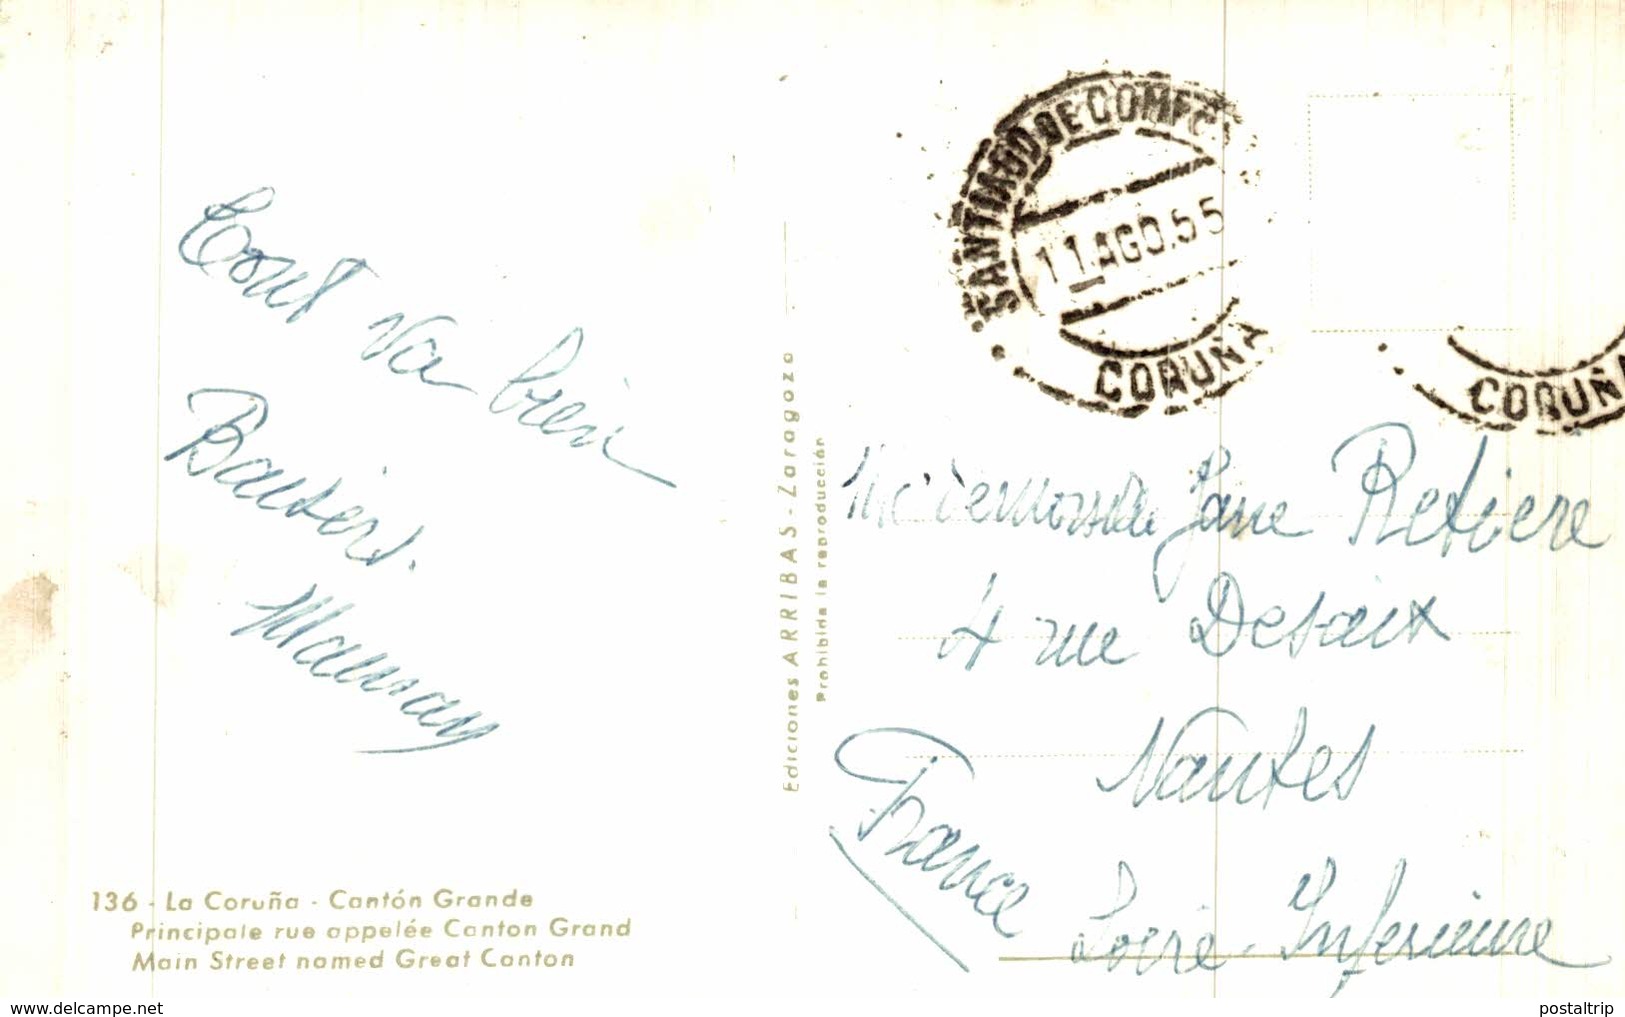 Tout va bien
Baisers.
Maman
136 - La Coruña - Cantón Grande
Principale rue appelée Canton Grand
Main Street named Great Canton
Ediciones ARRIBAS - Zaragoza
Prohibida la reproducción
SANTIAGO DE COMPO
11 AGO.55
CORUÑA
CORUÑA
Mademoiselle Jane Retiere
4 rue Desaix
Nantes
France
Loire-Inferieure
www.delcampe.net
postaltrip